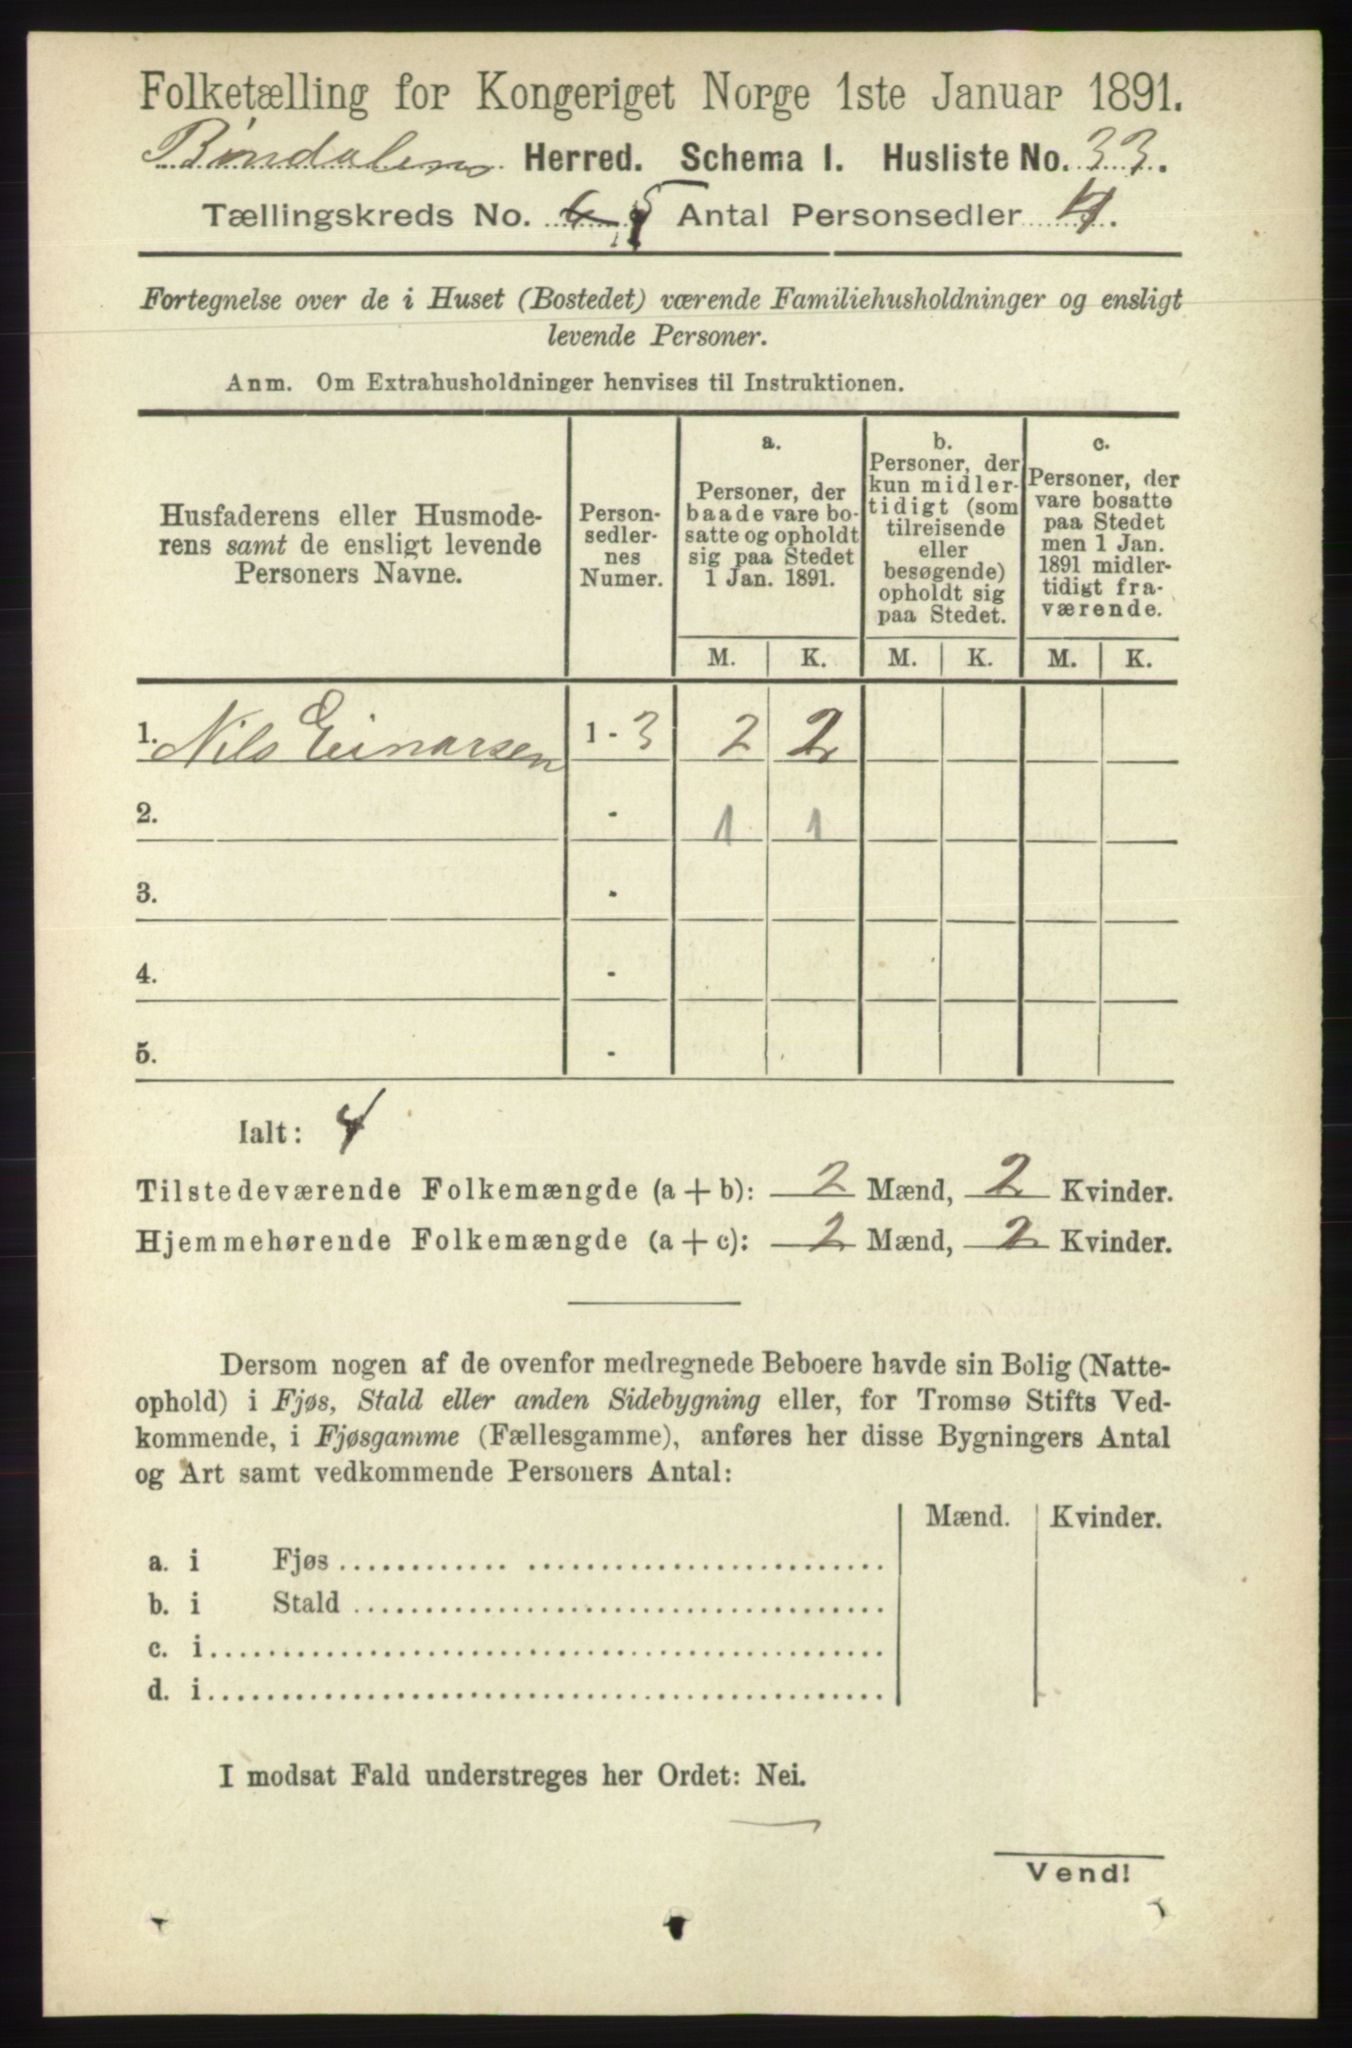 Folketælling for Kongeriget Norge 1ste Januar 1891.
Herred. Schema I. Husliste No. 33.
Tællingskreds No. 5 Antal Personsedler 4.
Fortegnelse over de i Huset (Bostedet) værende Familiehusholdninger og ensligt
levende Personer.
Anm. Om Extrahusholdninger henvises til Instruktionen.
Husfaderens eller Husmode-
rens samt de ensligt levende
Personers Navne.
Person-
sedler-
nes
Numer.
a.
Personer, der
baade vare bo-
satte og opholdt
sig paa Stedet
1 Jan. 1891.
b.
Personer, der
kun midler-
tidigt (som
tilreisende
eller
besøgende)
opholdt sig
paa Stedet.
c.
Personer, der
vare bosatte
paa Stedet
men 1 Jan.
1891 midler-
tidigt fra-
værende.
M. K. M. K. M. K.
1. Nils Einarsen 1 - 3 2 2
2. - 1 1
3. -
4. -
5. -
Ialt: 4
Tilstedeværende Folkemængde (a + b): 2 Mænd, 2 Kvinder.
Hjemmehørende Folkemængde (a + c): 2 Mænd, 2 Kvinder.
Dersom nogen af de ovenfor medregnede Beboere havde sin Bolig (Natte-
ophold) i Fjøs, Stald eller anden Sidebygning eller, for Tromsø Stifts Ved-
kommende, i Fjøsgamme (Fællesgamme), anføres her disse Bygningers Antal
og Art samt vedkommende Personers Antal:
Mænd. Kvinder.
a. i Fjøs
b. i Stald
c. i
d. i
I modsat Fald understreges her Ordet: Nei.
Vend!